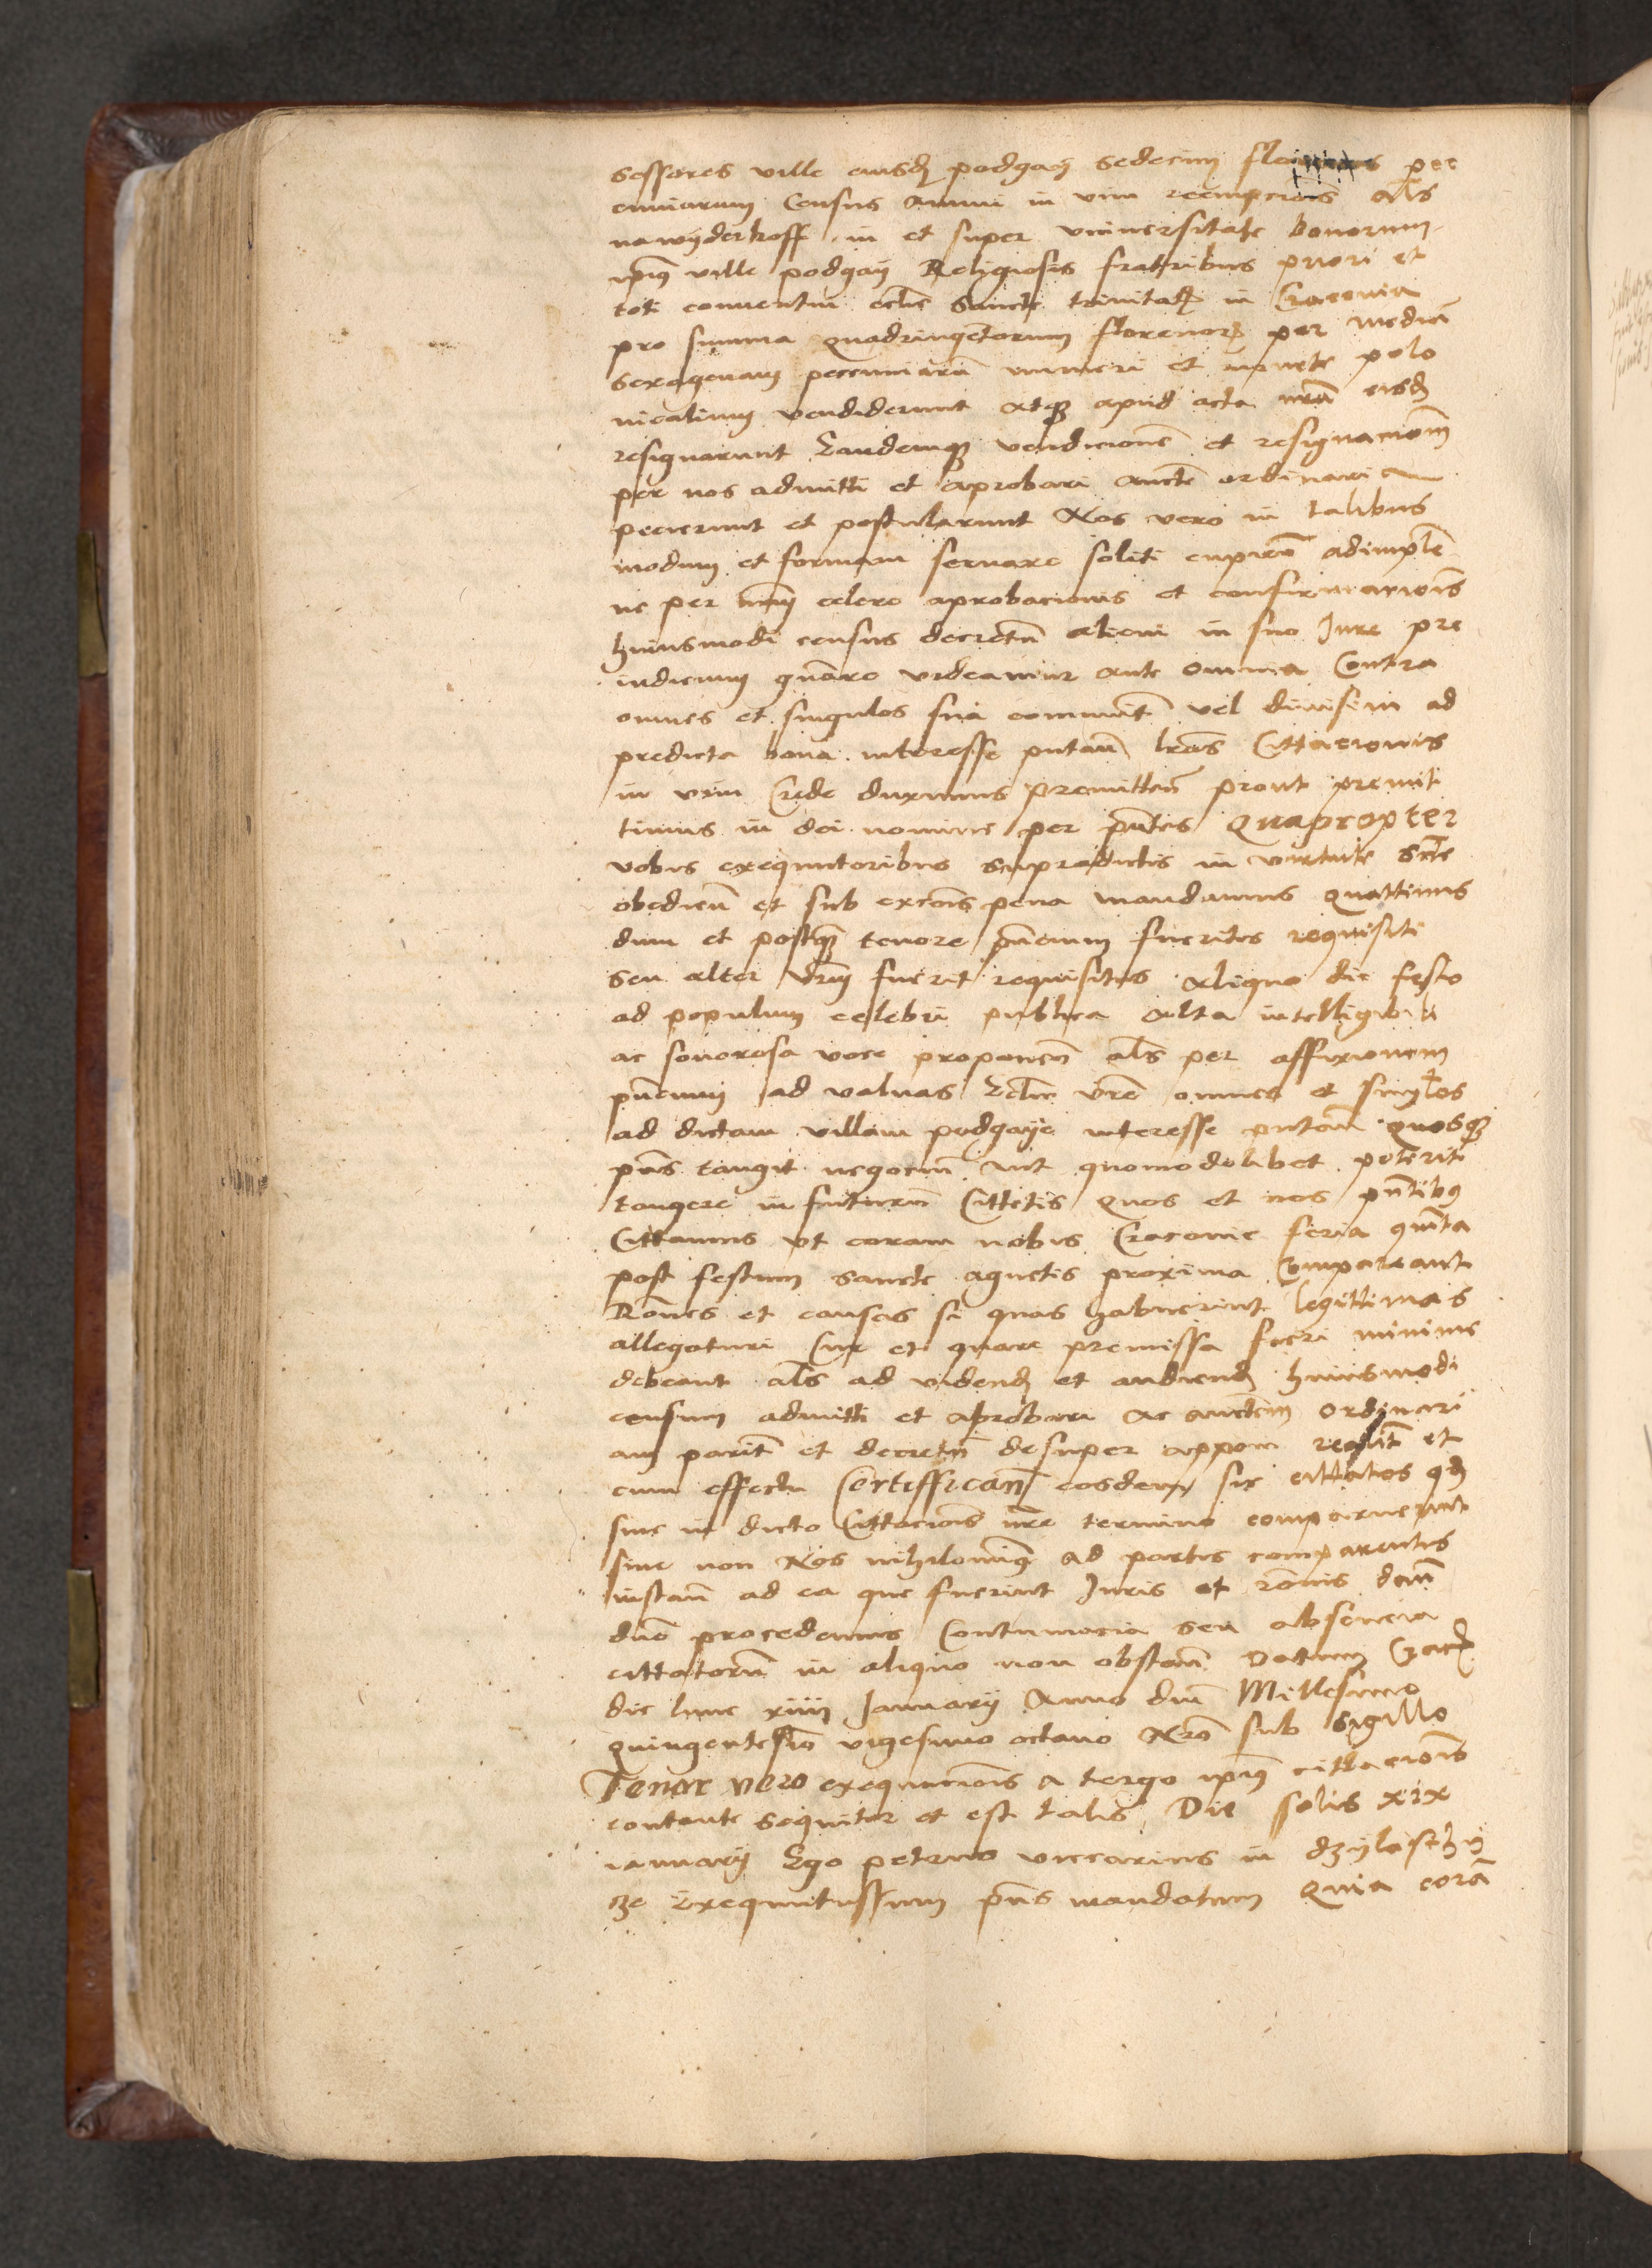 sessores ville eiusd podgaij sedecim florenos pec
cuniarum Census annui in vim reempcionis als
nawyderkoff in et super vniuersitate bonorum
ipius ville podgaij Religiosis fratribus priori et
toti conuentui eclie Sancte trinitat in Cracouia
pro summa quadringentorum florenor per mediã
sexagenam peccuniarũ numeri et monete polo
nicalium vendiderunt atq apud acta nrã eisd
resignarunt Eandemq vendicionẽ et resignacionẽ
per nos admitti et aprobari aucte ordinaria
pecierunt et postularunt Nos vero in talibus
modum et formam seruare soliti adimple
ne per nimiũ celere aprobacionis et confirmacionis
huiusmodi census decretũ alicui in suo Jure pre
iudicium generare videamur ante omnia Contra
omnes et singulos sua communit vel diuisim ad
predicta bona interesse putañ lras Cittacionis
in vim Crede duximus premitten prout premit
timus in dei nomine per pntes Quapropter
vobis exequutoribus supradictis in virtute scte
obedien et sub excois pena mandamus quattinus
dum et postq tenore pncium fueritis requisiti
seu alter vrm fuerit requisitus aliquo die festo
ad populum celebri publica alta intelligibili
ac sonorosa voce proponen als per affixionem
pncium ad valuas Eclie vre omnes et singlos
ad dictam villam podgaije interesse putañ quosq
pns tangit negociũ aut quomodolibet poterit
tangere in futurũ Cittetis quos et nos pntibus
Cittamus vt coram nobis Cracouie feria quinta
post festum sancte agnetis proxima Compareant
Roñes et causas si quas habuerint legittimas
allegaturi Cur et quare premissa fieri minime
debeant als ad videnđ et audienđ huiusmodi
censum admitti et aprobari ac auctem ordinari
am parit et decretũ desuper appoñ realit et
cum effectu Certifficañ eosdem sic cittatos qđ
siue in dicto Cittacionis nre termino comparuerint
siue non Nos nihilominus ad partis comparentis
instañ ad ea que fuerint Juris et rõnis
duõ procedemus Contumacia seu absencia
cittatorũ in aliquo non obstañ Datum Crac
die lune xiiii Januarij Anno dni Millesimo
quingentesio vigesimo octauo Nro sub sigillo
Tenor vero exequucionis a tergo ipius cittacionis
contente sequitur et est talis Die solis xix
ianuarij Ego petrus viccarius in dzylaschy
ce Exequutussum pns mandatum Quia corã